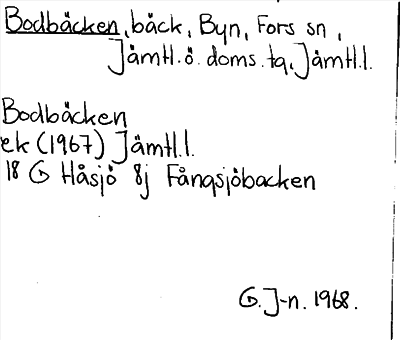 Bodbäcken, bäck, Byn, Fors sn,
Jämtl. ö. doms. tg, Jämtl.l.
Bodbäcken
ek (1967) Jämtl.l.
18 G Håsjö 8j Fångsjöbacken
G. J-n. 1968.